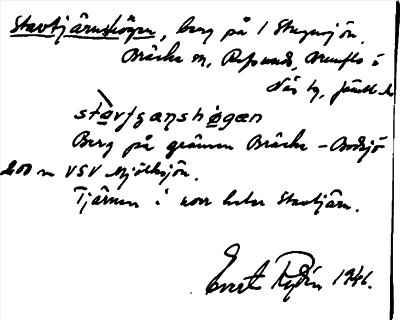 Stavtjärnshögen, berg på 1 Stugusjön,
Bräcke sn, Refsunds, Brunflo o
Näs tg, Jämtl. l.
stavtjæṇshøgæn
Berg på gränsen Bräcke - Bodsjö
800 m VSV Mjölksjön.
Tjärnen i norr heter Stavtjärn.
Evert Rydén 1941.